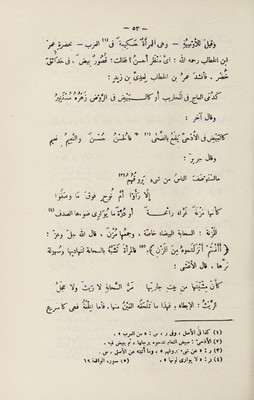 — ٥٣ —
وقيل للأوسية – وهى امرأة حكيمة فى(١) العرب – بحضرة عمر
ابن الخطاب رحمه الله : أىّ منظر أحسن؟ فقالت: قصور بيض، فى حدائق
خُضر. فأنشد عمرُ بن الخطاب لعدىّ بن زيد:
كدُمَى العاج فى المحاريب أو كالـ ـبَيْض فى الرَّوْض زَهْرُهُ مُسْتَنيرُ
وقال آخر :
كالبَيْض فى الأُدحىّ يلمع بالضُّحى(٢) * فالحُسن حُسن والنعيم نعيم
وقال جرير :
ما استوصف الناس من شىء يروقهمُ(٣)
إلّا رأوا أمّ نوح فوق ما وصفوا
كأنها مزنة غرّاء رائحة أو درّة ما يوارى ضوءها الصدف(٤)
المزنة : السحابة البيضاء خاصّة، وجمعها مُزْن. قال الله جلّ وعزّ :
﴿أأنتم أنزلتموه من المزن﴾(٥) فالمرأة تُشبَّه بالسحابة لتهاديها وسهولة
مرّها. قال الأعشى :
كأنّ مشيتها من بيت جارتها مرّ السحابة لا ريث ولا عجل
الريث : الإبطاء، فهذا ما تلحقه العين منها. فأما الخفّة فهى كأسرع
(١) كذا فى الأصل، وفى ر، س : « من العرب ».
(٢) الأدحى : مبيض النعام
(٤) ر : « لا يوارى لونها ». (٥) سورة الواقعة ٦٩